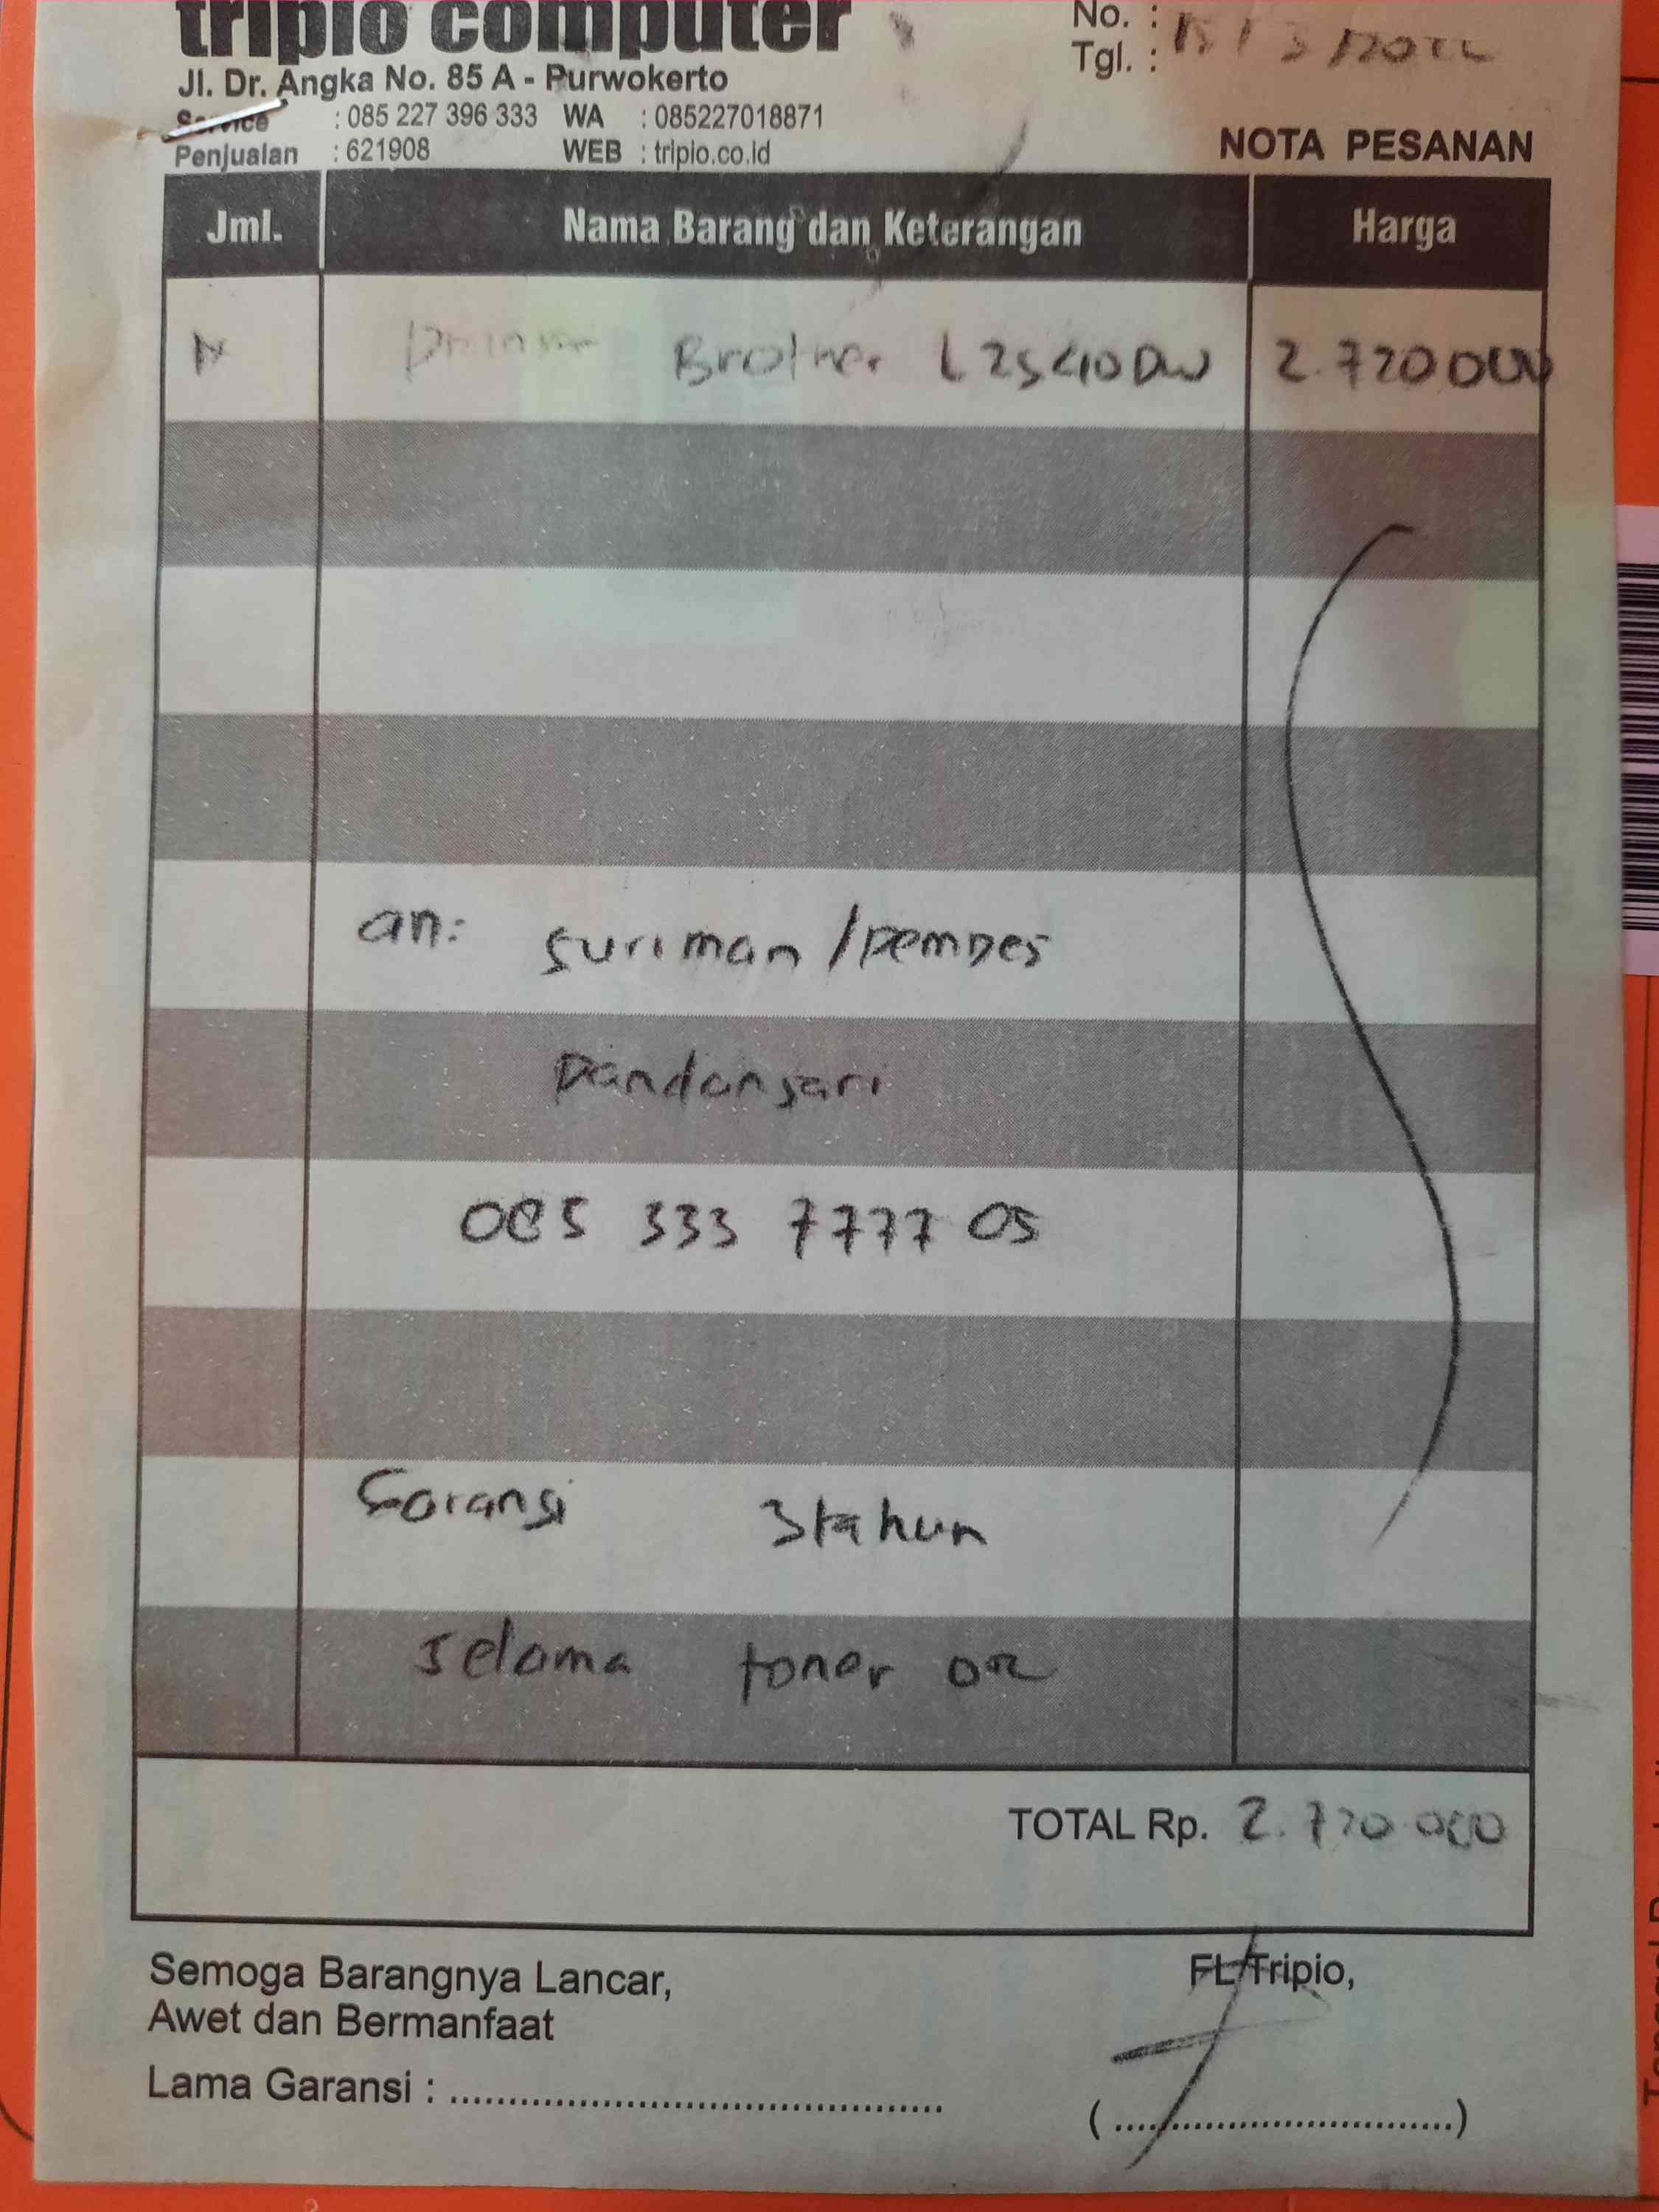 tripio computer
No. :
Jl. Dr. Angka No. 85 A - Purwokerto
Tgl. : 15 / 3 / 2022
Service : 085 227 396 333 WA : 085227018871
Penjualan : 621908 WEB : tripio.co.id
NOTA PESANAN
Jml. Nama Barang dan Keterangan Harga
Brother L2540DW 2.720 000
an: suriman / pemdes
pandansari
085 333 7777 05
Garansi 3 tahun
selama toner
TOTAL Rp. 2.720 000
Semoga Barangnya Lancar,
Awet dan Bermanfaat
FL Tripio,
Lama Garansi : ................................................
( ................................ )